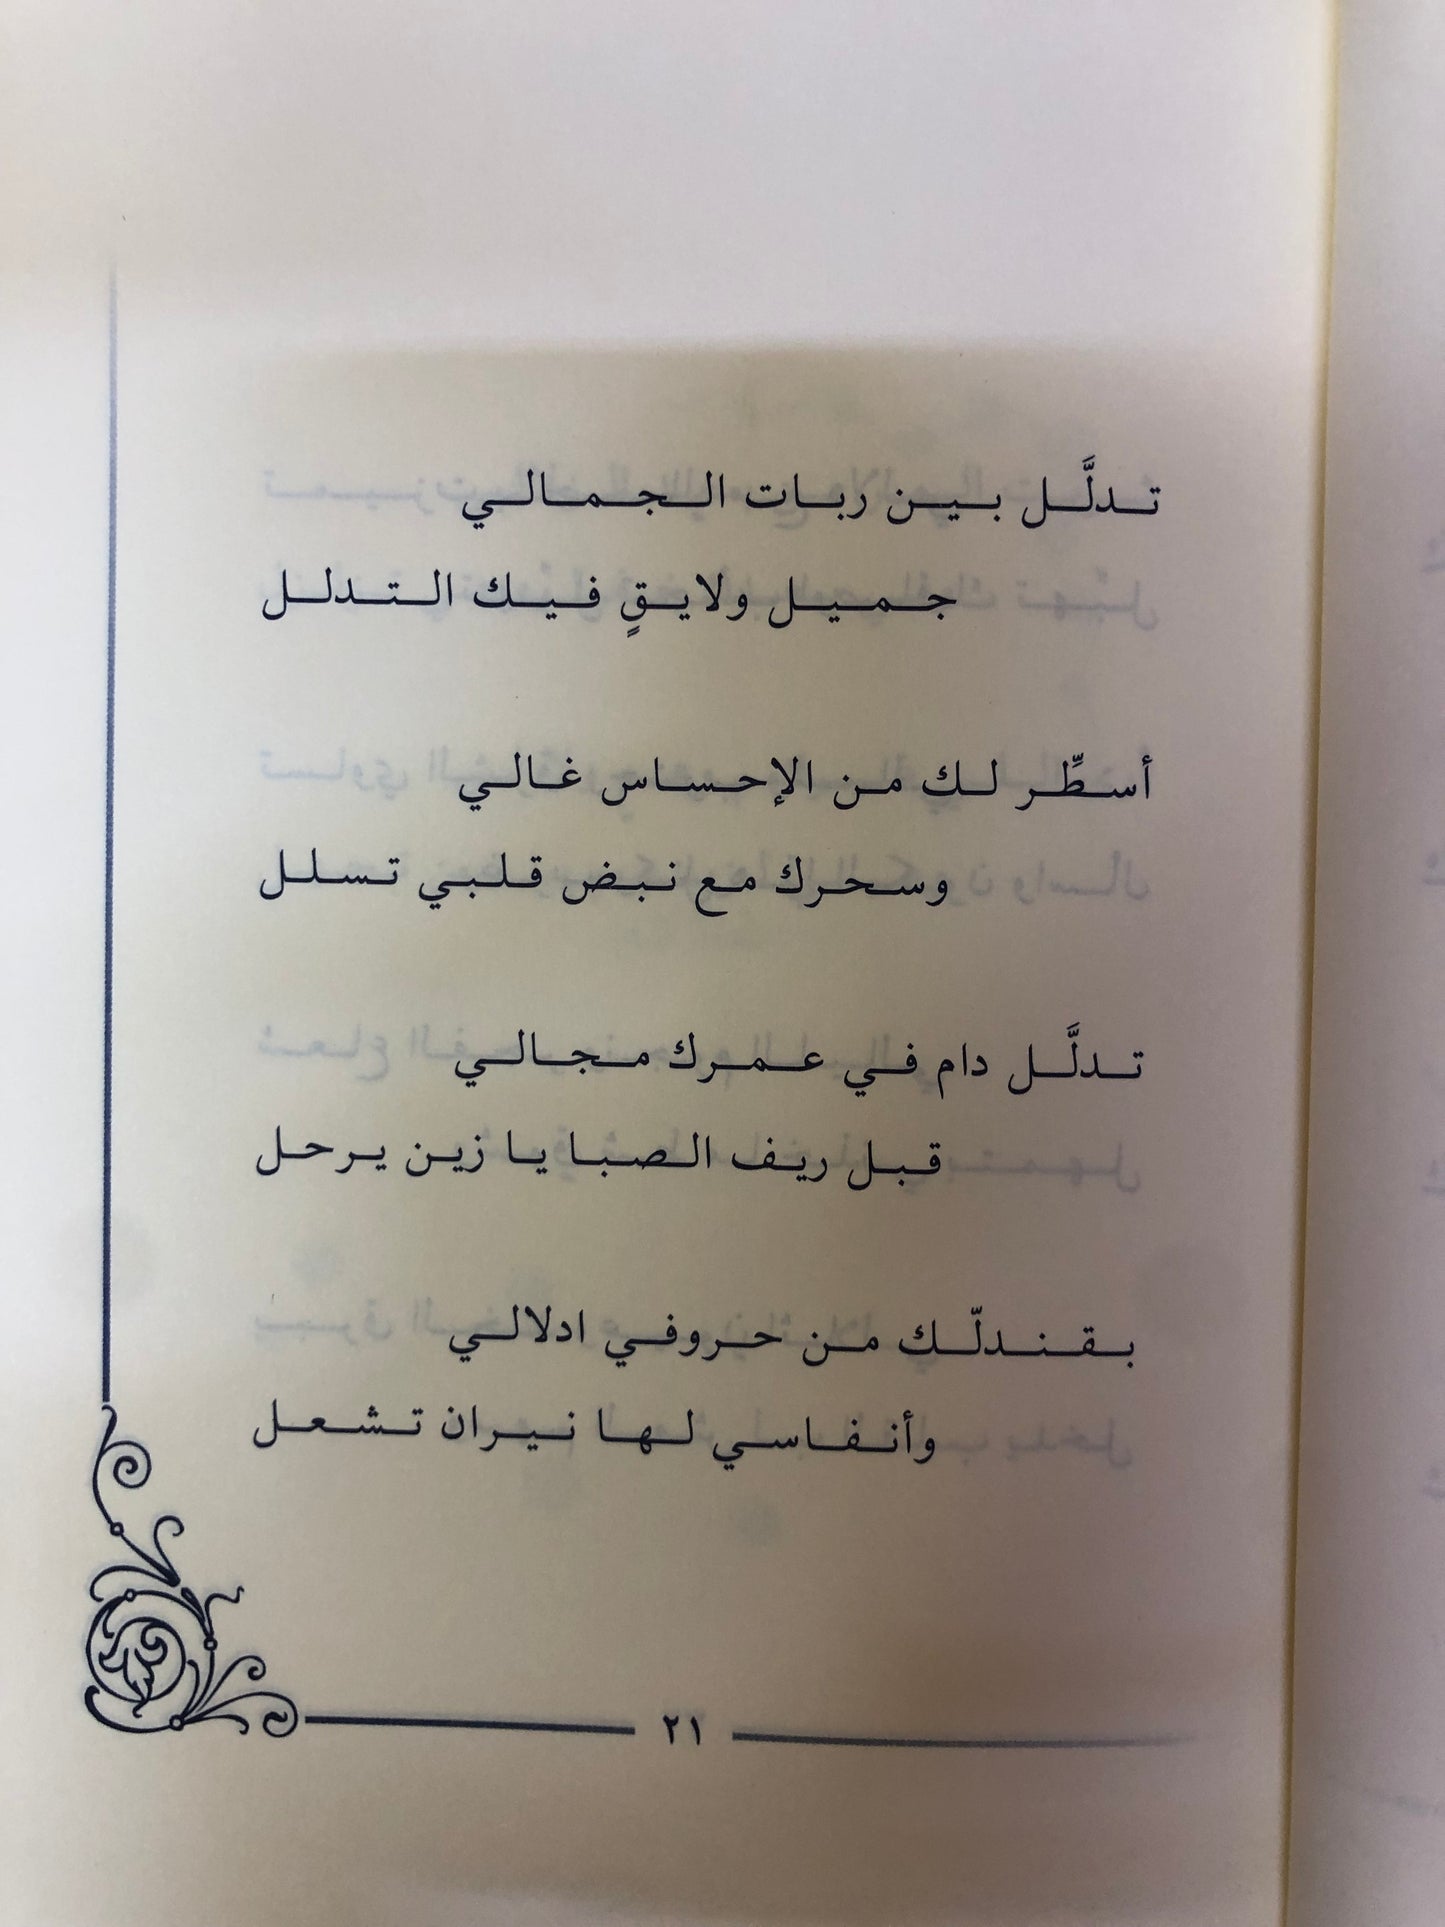 تدلَّل بين ربات الجمالي
جميل ولايقٍ فيك التدلل
أسطِّر لك من الإحساس غالي
وسحرك مع نبض قلبي تسلل
تدلَّل دام في عمرك مجالي
قبل ريف الصبا يا زين يرحل
بقندلّك من حروفي ادلالي
وأنفاسي لها نيران تشعل
٢١